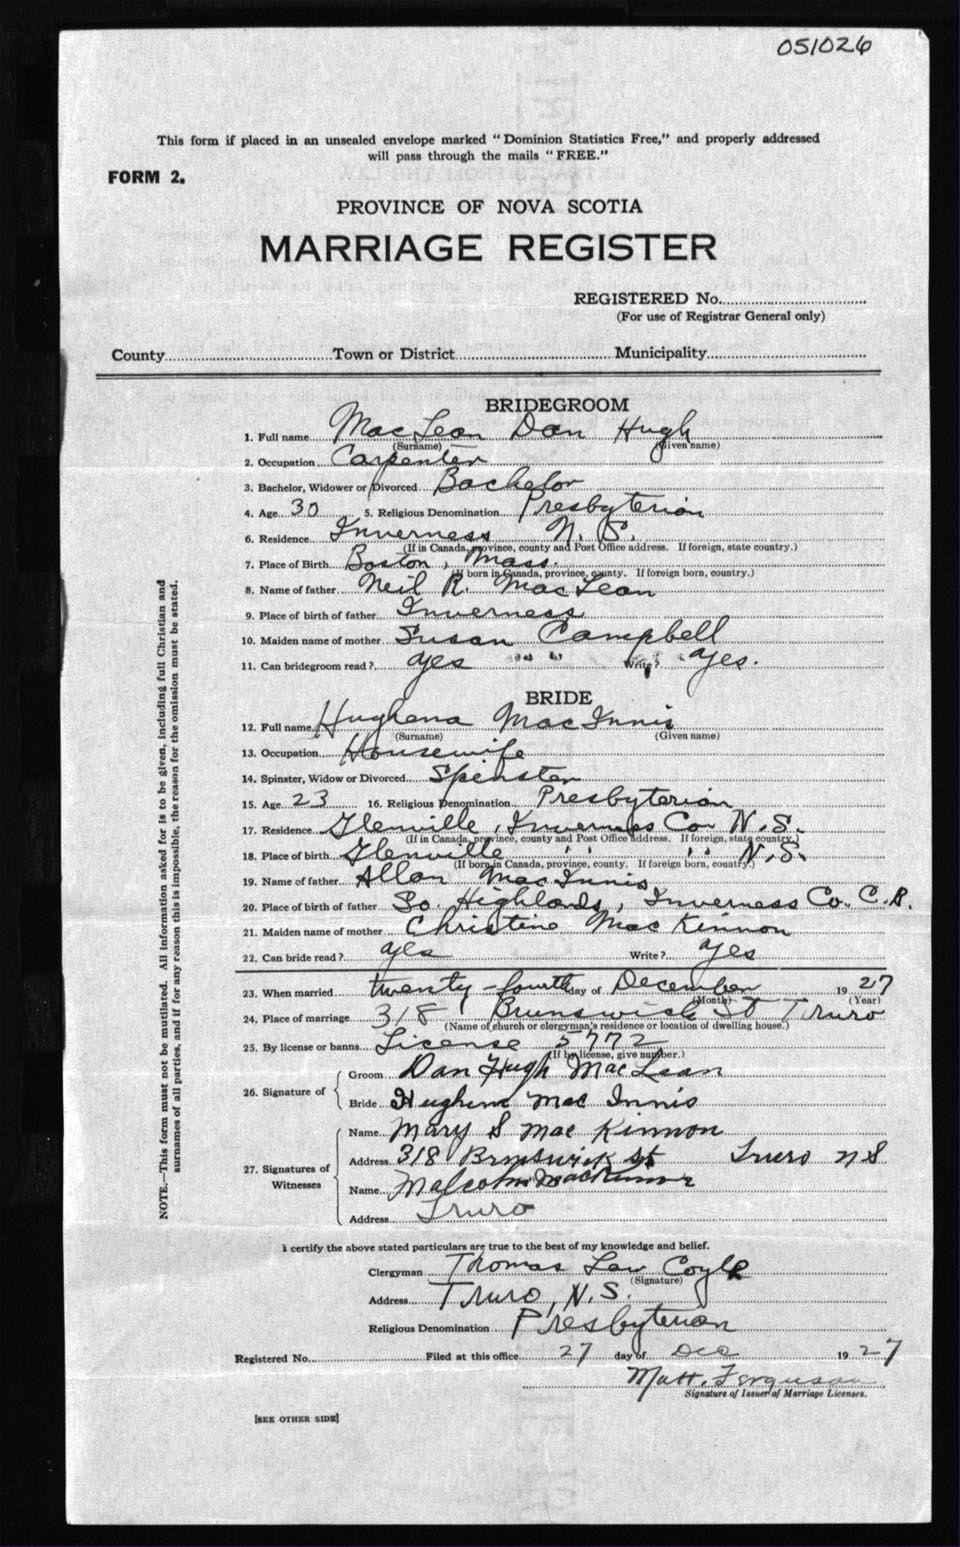 051026
This form if placed in an unsealed envelope marked "Dominion Statistics Free," and properly addressed
will pass through the mails "FREE."
FORM 2.
PROVINCE OF NOVA SCOTIA
MARRIAGE REGISTER
REGISTERED No.
(For use of Registrar General only)
County Town or District Municipality
BRIDEGROOM
1. Full name MacLean Dan Hugh
(Surname) (Given name)
2. Occupation Carpenter
3. Bachelor, Widower or Divorced Bachelor
4. Age 30 5. Religious Denomination Presbyterian
6. Residence Inverness N. S.
(If in Canada, province, county and Post Office address. If foreign, state country.)
7. Place of Birth Boston, Mass.
(If born in Canada, province, county. If foreign born, country.)
8. Name of father Neil R. MacLean
9. Place of birth of father Inverness
10. Maiden name of mother Susan Campbell
11. Can bridegroom read? yes Write? yes.
BRIDE
12. Full name Hughena MacInnis
(Surname) (Given name)
13. Occupation Housewife
14. Spinster, Widow or Divorced Spinster
15. Age 23 16. Religious Denomination Presbyterian
17. Residence Glenville, Inverness Co. N.S.
(If in Canada, province, county and Post Office address. If foreign, state country.)
18. Place of birth Glenville " " N.S.
(If born in Canada, province, county. If foreign born, country.)
19. Name of father Allan MacInnis
20. Place of birth of father So. Highlands, Inverness Co. C.B.
21. Maiden name of mother Christine MacKinnon
22. Can bride read? yes Write? yes
23. When married twenty-fourth day of December 1927
(Month) (Year)
24. Place of marriage 318 Brunswick St Truro
(Name of church or clergyman's residence or location of dwelling house.)
25. By license or banns License 5772
(If by license, give number.)
26. Signature of
Groom Dan Hugh MacLean
Bride Hughena Mac Innis
27. Signatures of Witnesses
Name Mary S Mac Kinnon
Address 318 Brunswick St Truro N S
Name Malcolm MacKinnon
Address Truro
I certify the above stated particulars are true to the best of my knowledge and belief.
Clergyman Thomas Law Coyle
(Signature)
Address Truro, N.S.
Religious Denomination Presbyterian
Registered No. Filed at this office 27 day of Dec 1927
Matt. Ferguson
Signature of Issuer of Marriage Licenses.
[SEE OTHER SIDE]
NOTE.—This form must not be mutilated. All information asked for is to be given, including full Christian and
surnames of all parties, and if for any reason this is impossible, the reason for the omission must be stated.